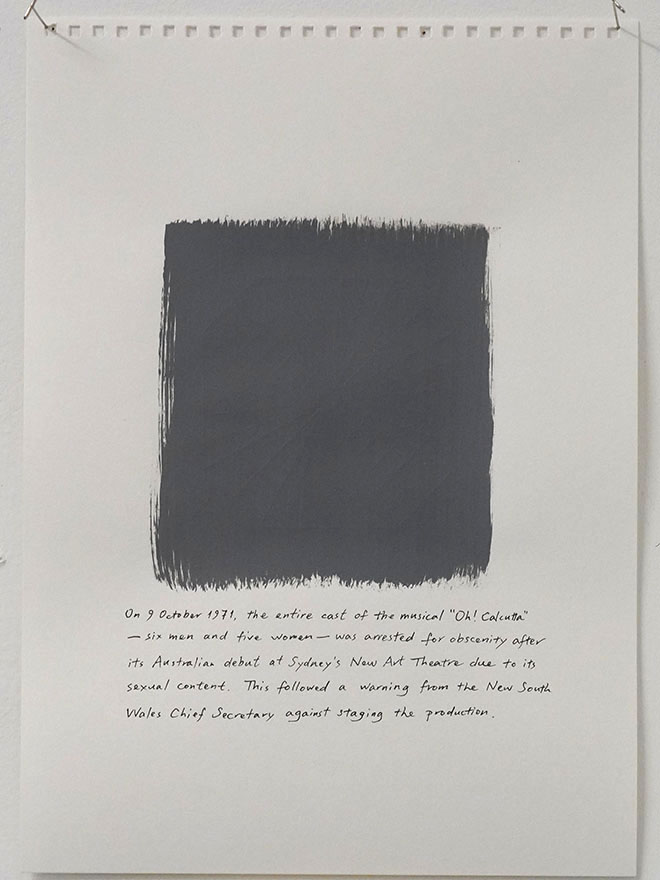 On 9 October 1971, the entire cast of the musical "Oh! Calcutta"
— six men and five women — was arrested for obscenity after
its Australian debut at Sydney's New Art Theatre due to its
sexual content. This followed a warning from the New South
Wales Chief Secretary against staging the production.